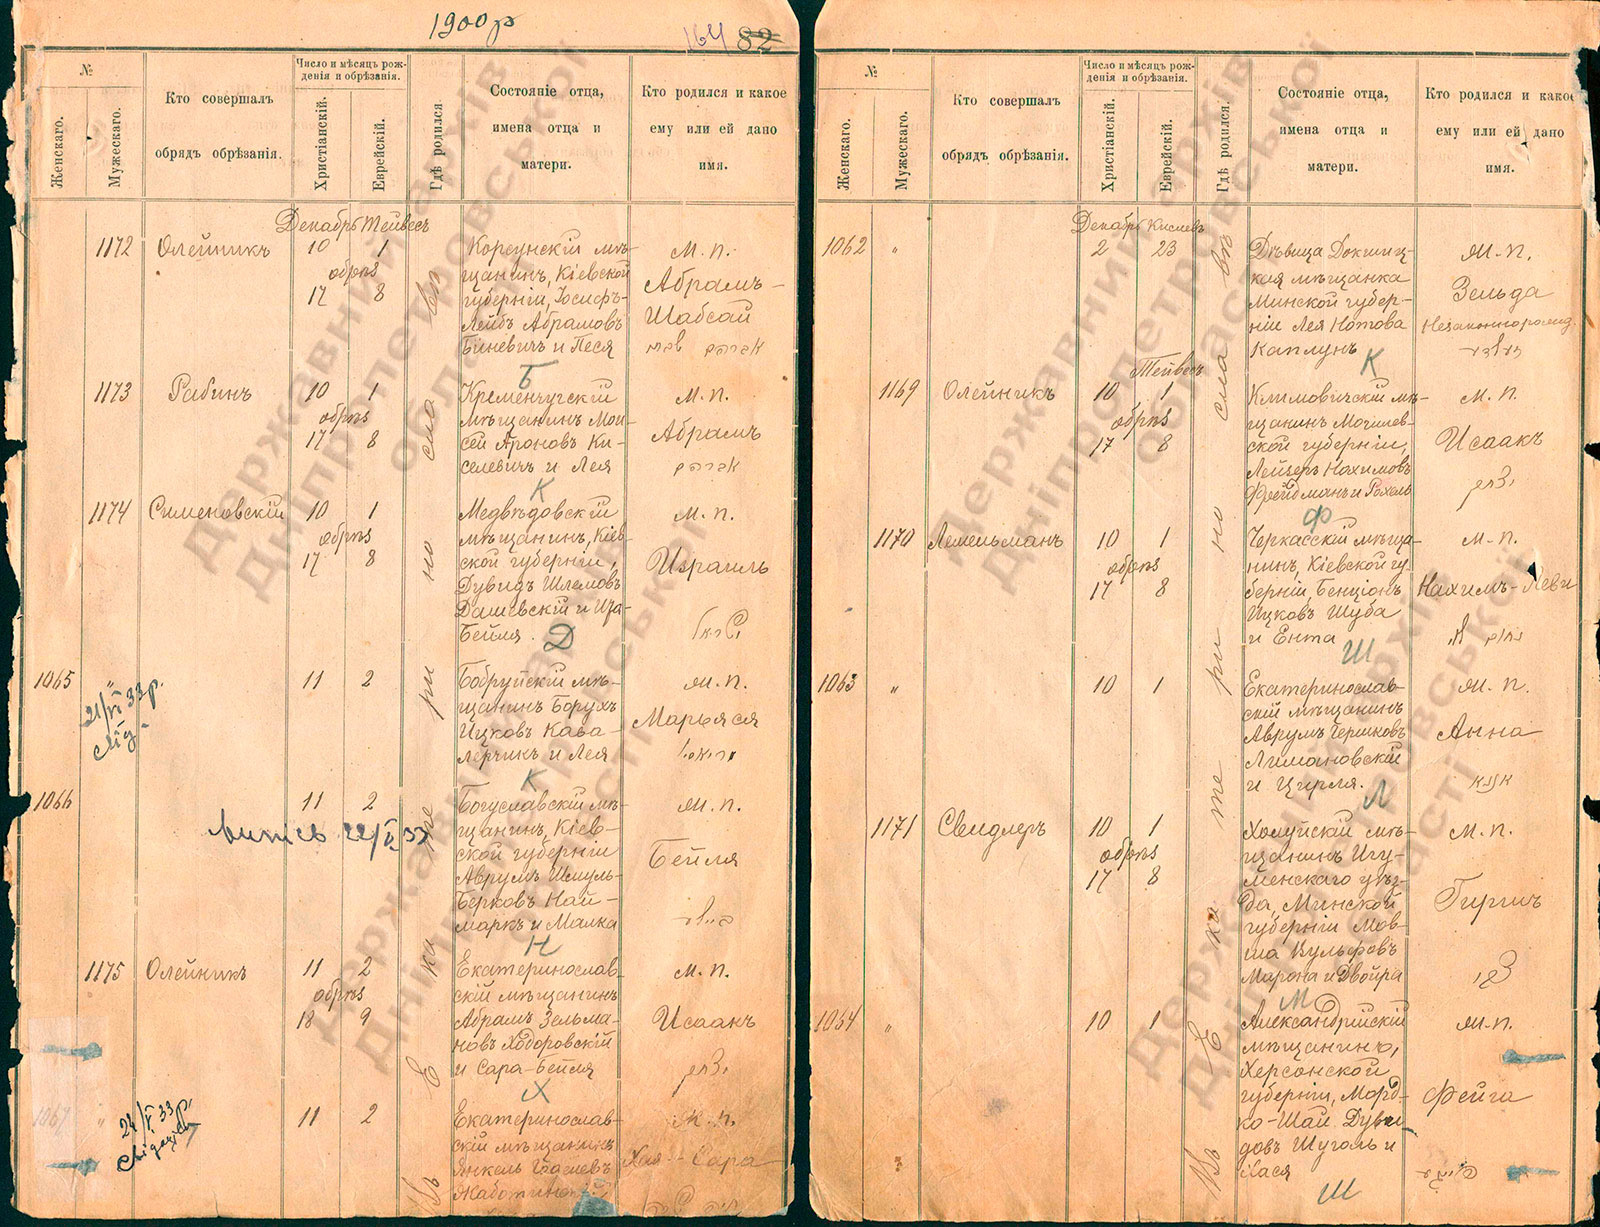 1900р
164 82
№
Женскаго.
Мужескаго.
Кто совершалъ
обрядъ обрѣзанія.
Число и мѣсяцъ рож-
денія и обрѣзанія.
Христіанскій.
Еврейскій.
Гдѣ родился
Состояніе отца,
имена отца и
матери.
Кто родился и какое
ему или ей дано
имя.
Декабрь Тейвесъ
1172 Олейникъ 10 1
обрѣз
17 8
Корсунскій мѣ-
щанинъ, Кіевской
губерніи, Іосифъ-
Лейбъ Абрамовъ
Биневичъ и Песя
Б
м. п.
Абрамъ-
Шабсай
1173 Рабинъ 10 1
обрѣз
17 8
Кременчугскій
мѣщанинъ Мои-
сей Ароновъ Ки-
селевичъ и Лея
К
м. п.
Абрамъ
אברהם
1174 Сименовскій 10 1
обрѣз
17 8
Медвѣдовскій
мѣщанинъ, Кіев-
ской губерніи,
Дувидъ Шлемовъ
Дашевскій и
Бейля.
Д
м. п.
Израиль
ישראל
1065 " 11 2
21/VI 33р.
Бобруйскій мѣ-
щанинъ Борухъ
Ицковъ Кава-
лерчикъ и Лея
К
м. п.
Марьяся
1066 11 2
22/V 33
Богуславскій мѣ-
щанинъ, Кіев-
ской губерніи
Аврумъ Шмуль-
Берковъ Най-
маркъ и Малка
Н
м. п.
Бейля
ביילא
1175 Олейникъ 11 2
обрѣз
18 9
Екатеринослав-
скій мѣщанинъ
Абрамъ Зельма-
новъ Ходоровскій
и Сара-Бейля
Х
м. п.
Исаакъ
יצחק
1067 " 11 2
24/V 33р.
Екатеринослав-
скій мѣщанинъ
Янкель
м. п.
Хая-Сара
Въ Е ка те ри но сла въ
№
Женскаго.
Мужескаго.
Кто совершалъ
обрядъ обрѣзанія.
Число и мѣсяцъ рож-
денія и обрѣзанія.
Христіанскій.
Еврейскій.
Гдѣ родился.
Состояніе отца,
имена отца и
матери.
Кто родился и какое
ему или ей дано
имя.
Декабрь Кислевъ
1062 " 2 23
Дѣвица Докшиц-
кая мѣщанка
Минской губер-
ніи Лея Нотова
Каплунъ
К
м. п.
Зельда
Незаконнорожд.
Тейвесъ
1169 Олейникъ 10 1
обрѣз
17 8
Климовичскій мѣ-
щанинъ Могилев-
ской губерніи,
Лейзеръ Нахимовъ
Фрейдманъ и Рохель
Ф
м. п.
Исаакъ
יצחק
1170 Лемельманъ 10 1
обрѣз
17 8
Черкасскій мѣща-
нинъ, Кіевской гу
берніи, Бенціонъ
Ицковъ Шуба
и Ента
Ш
м. п.
Нахимъ-Леви
1063 " 10 1
Екатеринослав-
скій мѣщанинъ
Аврумъ Гершковъ
Лимановскій
и Цирля.
Л
м. п.
Анна
1171 Свидлеръ 10 1
обрѣз
17 8
Холуйскій мѣ-
щанинъ Игу-
менскаго уѣз-
да, Минской
губерніи Мов-
ша
Марона и Двойра
М
м. п.
Гиршъ
1064 " 10 1
Александрійскій
мѣщанинъ,
Херсонской
губерніи, Морд-
ко-Шай Дуви-
довъ Шуголь и
Хася
Ш
м. п.
Фейга
Въ Е ка те ри но сла въ
Державний архів
Дніпропетровської
області